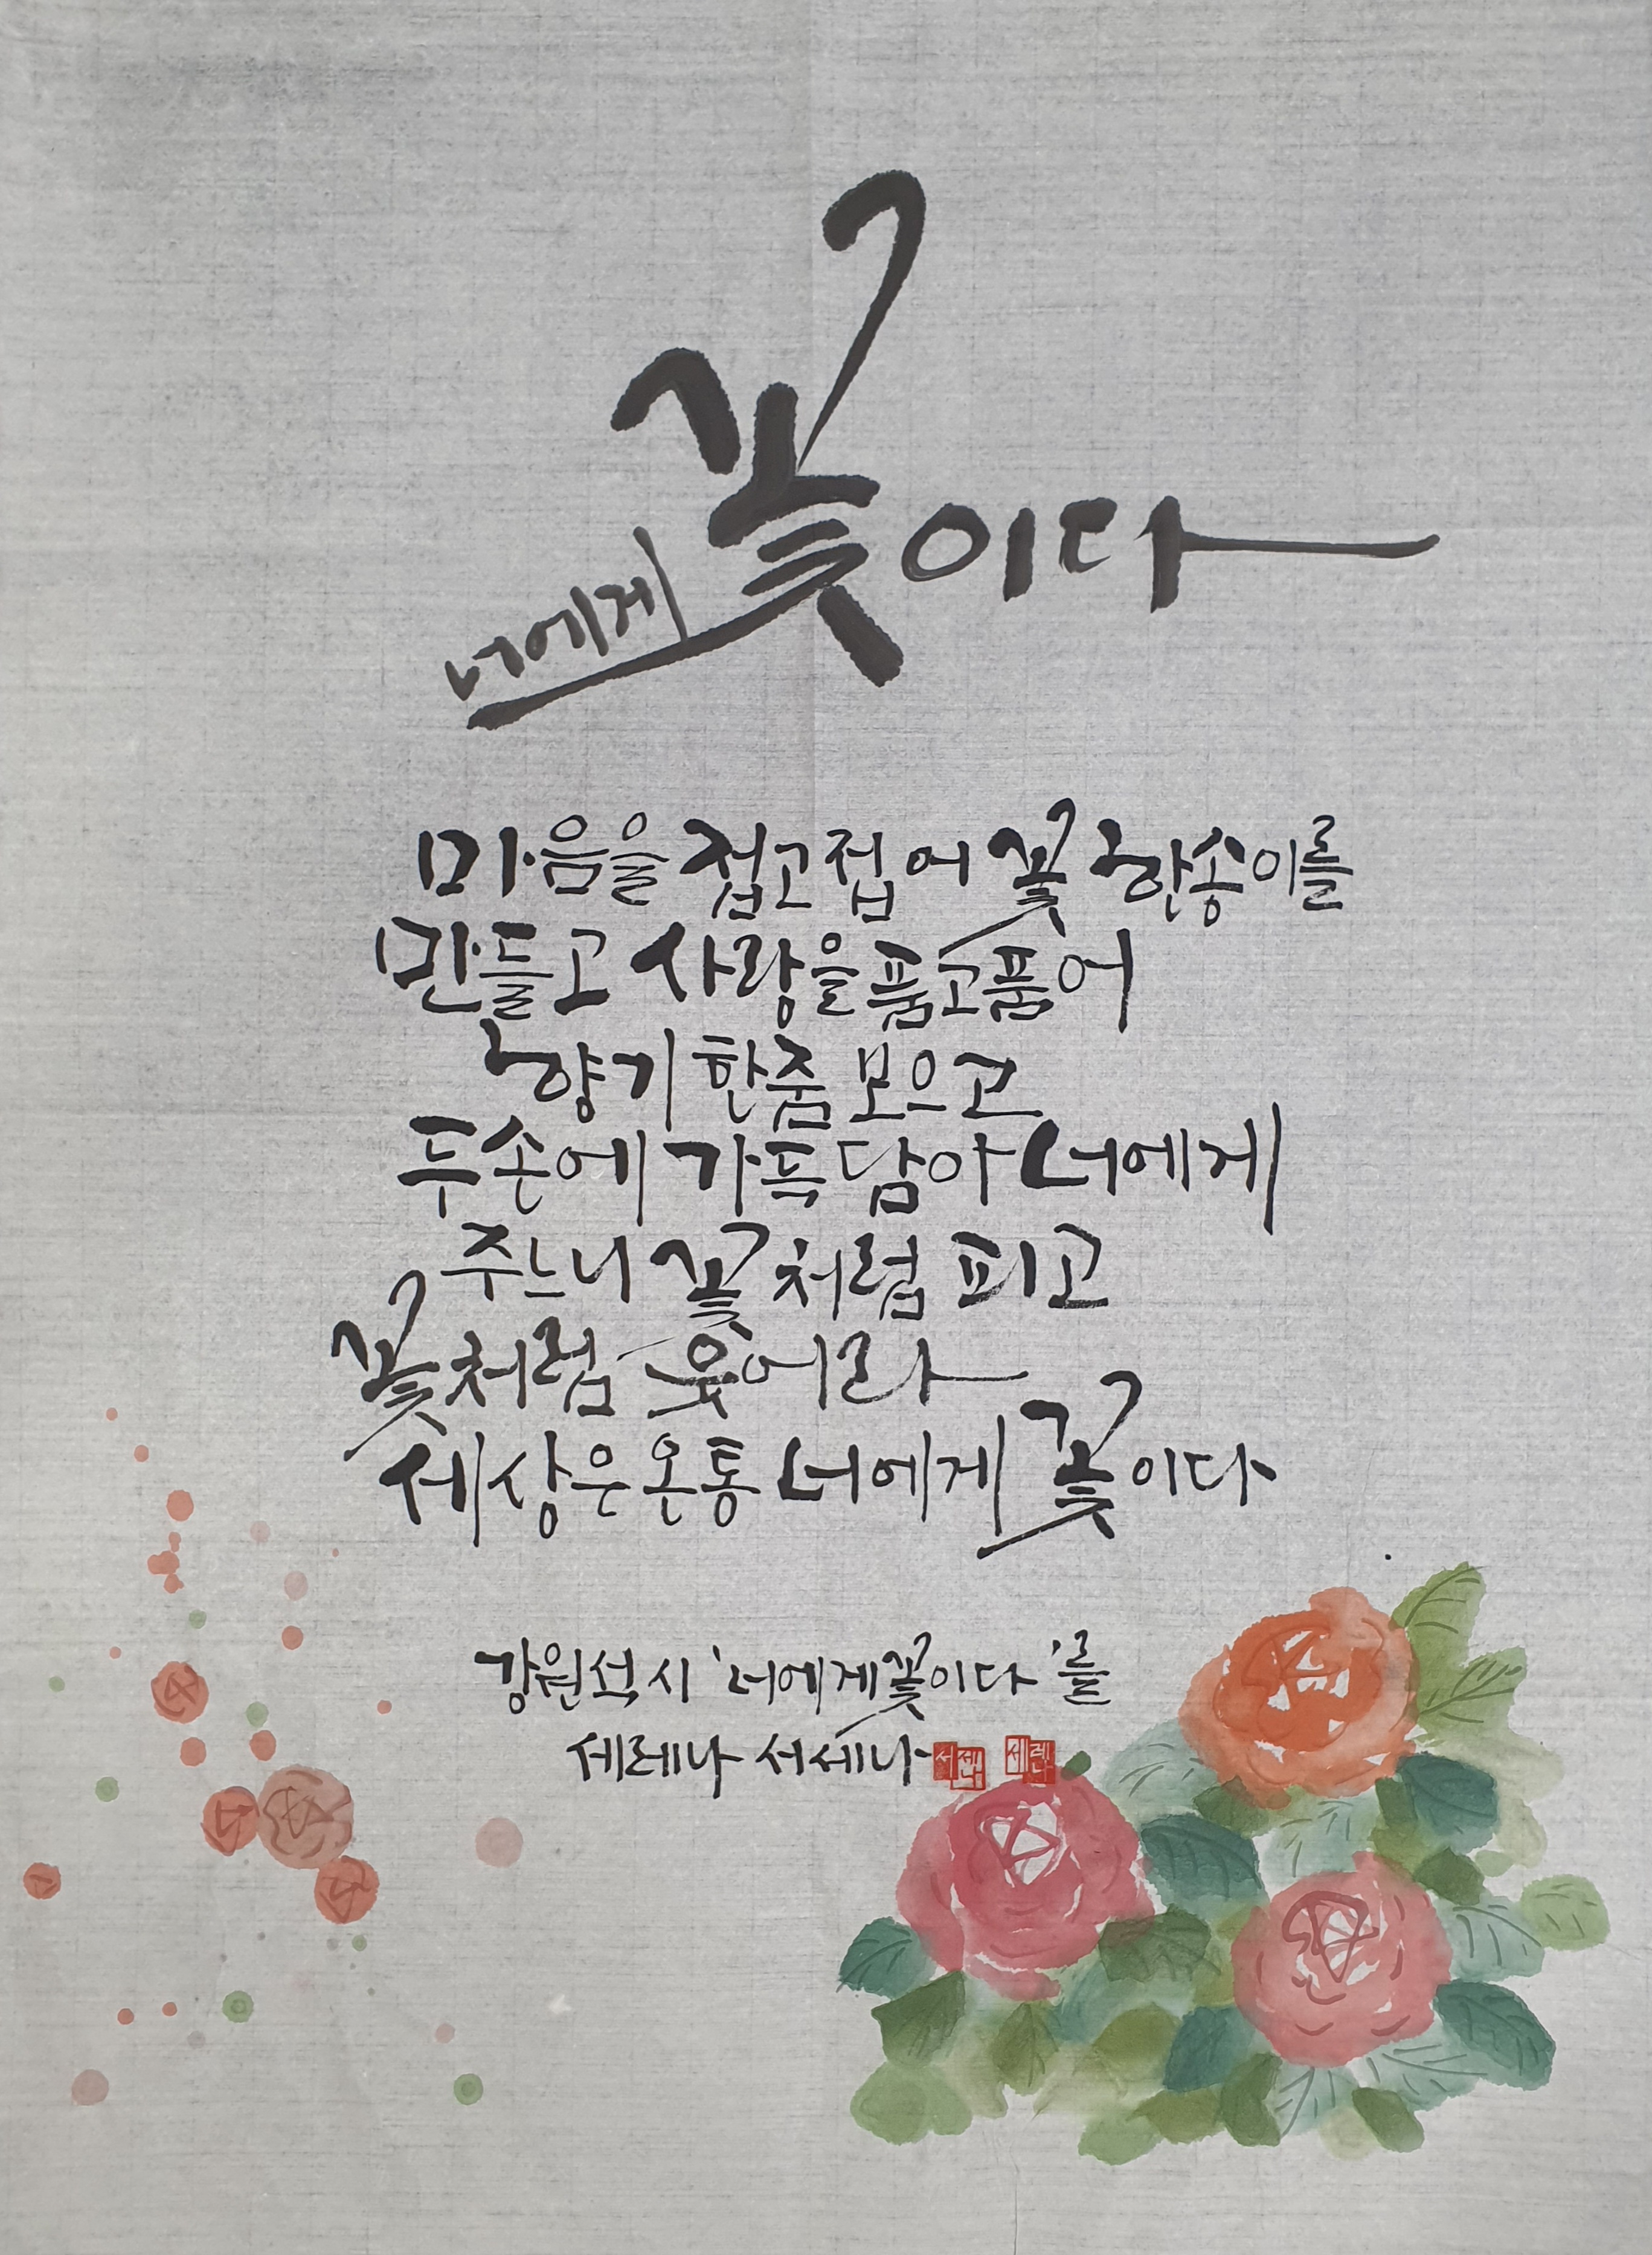 너에게 꽃이다
마음을 접고 접어 꽃 한송이를
만들고 사랑을 품고 품어
향기 한줌 모으고
두손에 가득 담아 너에게
주느니 꽃처럼 피고
꽃처럼 웃어라
세상은 온통 너에게 꽃이다
강원석 시 '너에게 꽃이다'를
세레나 서세나